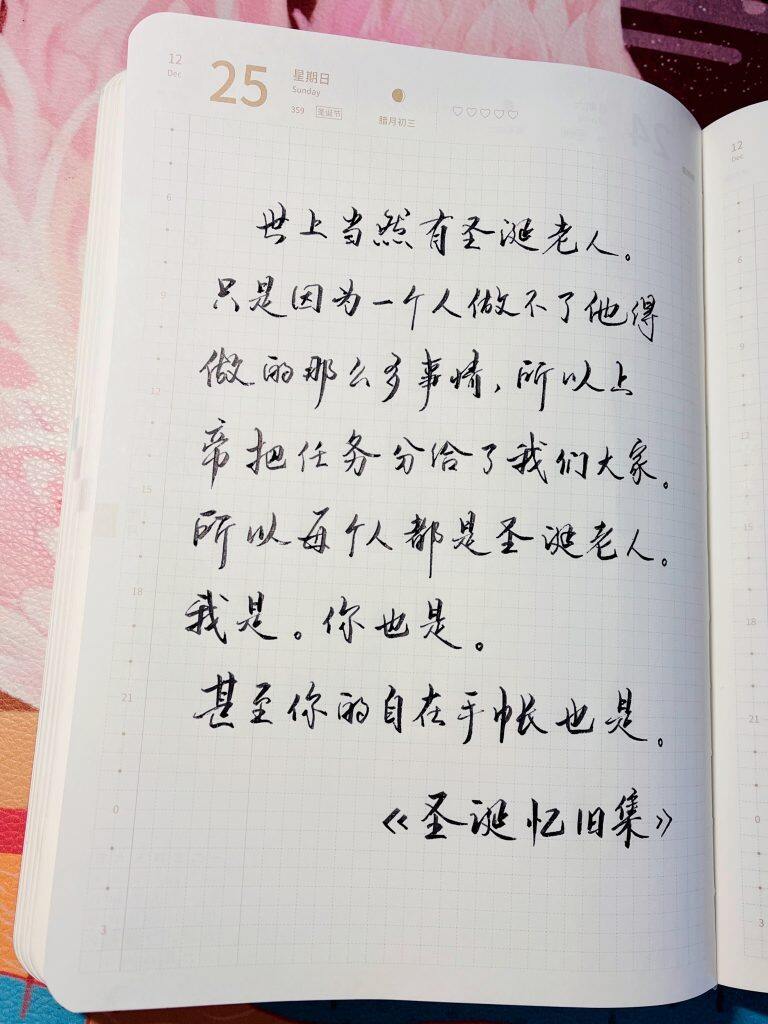 12
Dec
25
星期日
Sunday
359 圣诞节
腊月初三
世上当然有圣诞老人。
只是因为一个人做不了他得
做的那么多事情，所以上
帝把任务分给了我们大家。
所以每个人都是圣诞老人。
我是。你也是。
甚至你的自在手帐也是。
《圣诞忆旧集》
6
9
12
15
18
21
0
3
12
Dec
6
9
12
15
18
21
0
3